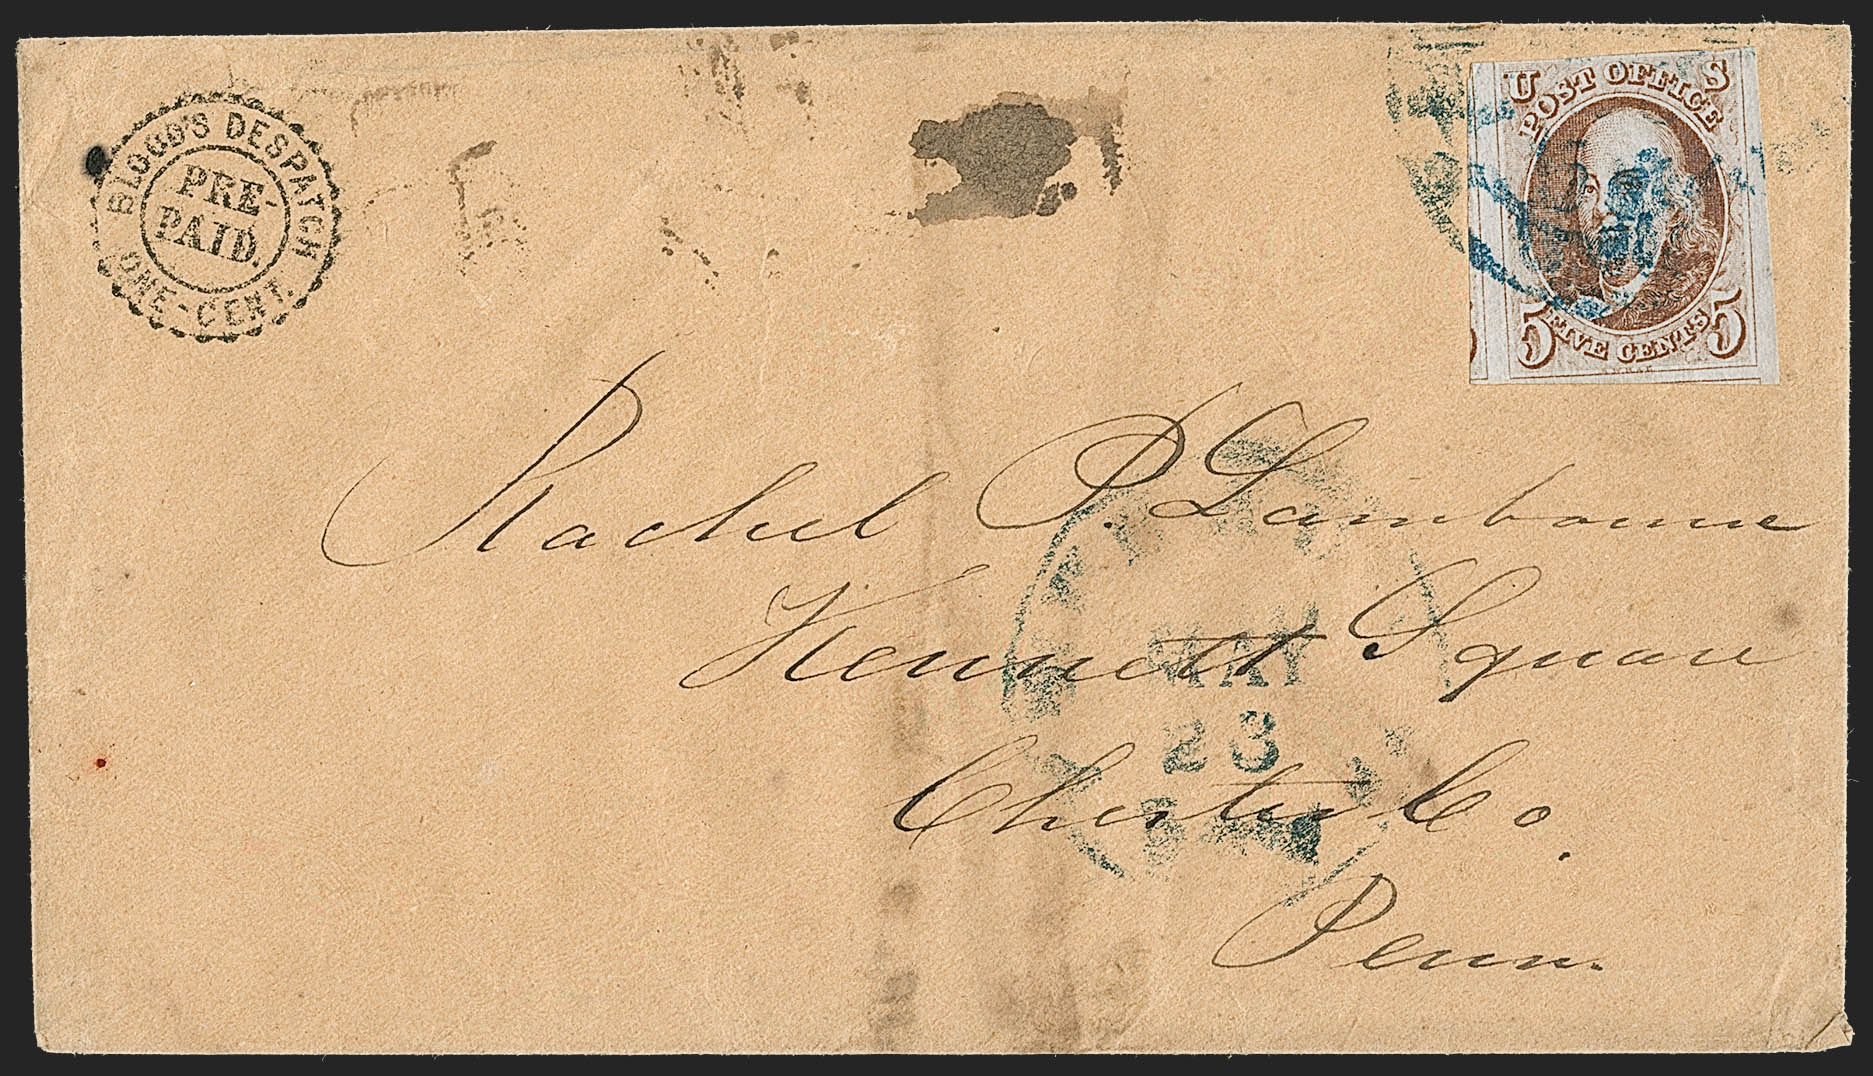 BLOOD'S DESPATCH
PRE-
PAID.
ONE-CENT.
U S
POST OFFICE
5 FIVE CENTS 5
Rachel P. Lambourne
Kennett Square
Chester Co.
Penn.
MAY
23